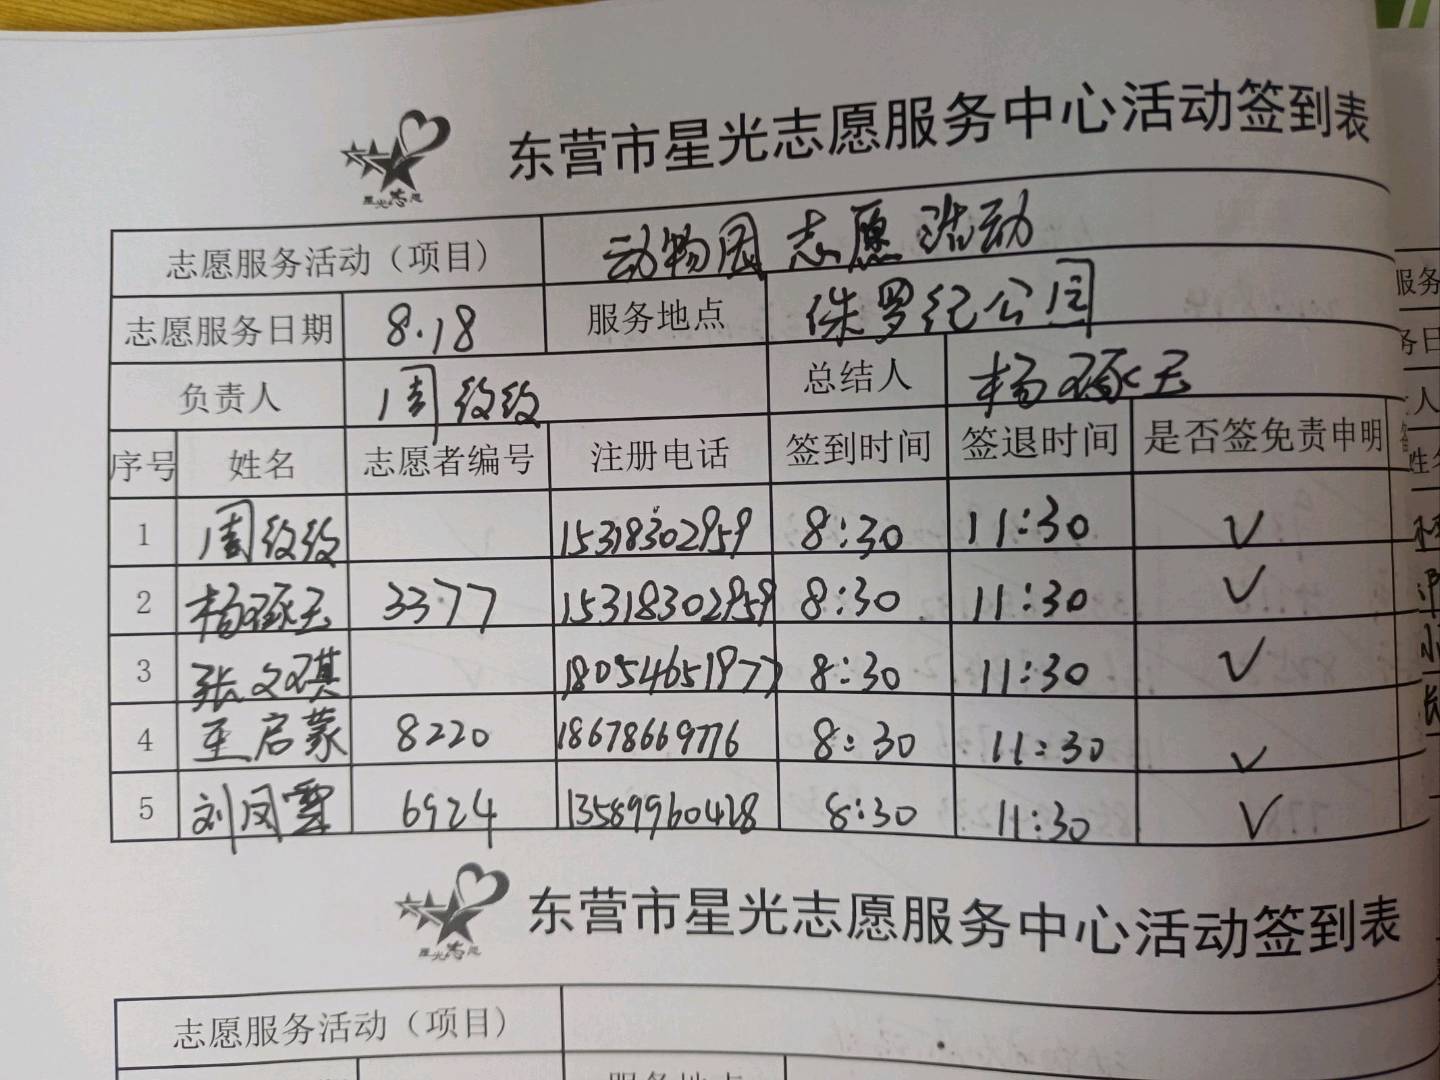 东营市星光志愿服务中心活动签到表
星光志愿
志愿服务活动（项目） 动物园志愿活动
志愿服务日期 8.18 服务地点 侏罗纪公园
负责人 周纹纹 总结人 杨琢玉
序号 姓名 志愿者编号 注册电话 签到时间 签退时间 是否签免责申明
1 周纹纹 15318302959 8:30 11:30 √
2 杨琢玉 3377 15318302959 8:30 11:30 √
3 张文琪 18054651977 8:30 11:30 √
4 王启蒙 8220 18678669776 8:30 11:30 √
5 刘凤雪 6924 13589960428 8:30 11:30 √
东营市星光志愿服务中心活动签到表
星光志愿
志愿服务活动（项目）
服务地点